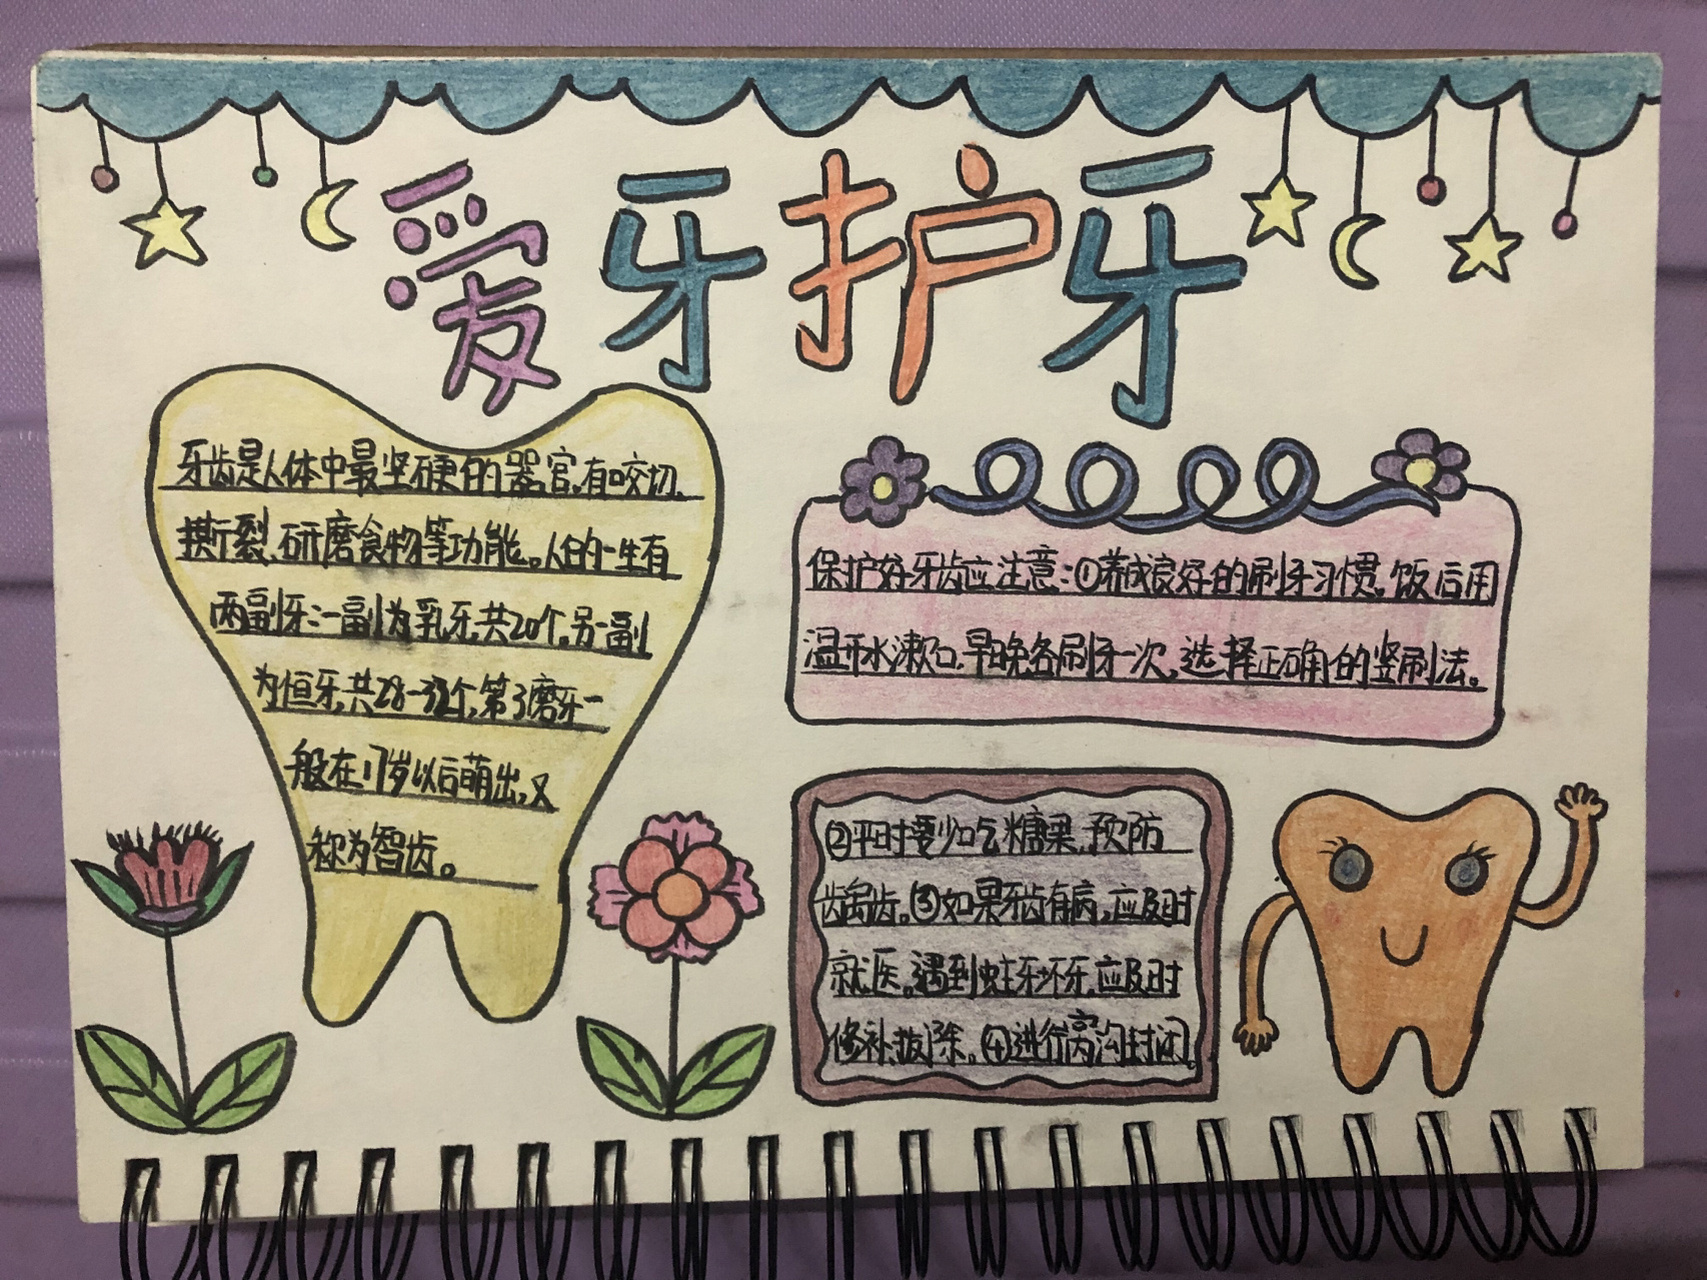 爱牙护牙
牙齿是人体中最坚硬的器官,有咬切、
撕裂、研磨食物等功能。人的一生有
两副牙:一副为乳牙,共20个,另一副
为恒牙,共28-32个,第3磨牙一
般在17岁以后萌出,又
称为智齿。
保护好牙齿应注意:①养成良好的刷牙习惯。饭后用
温开水漱口,早晚各刷牙一次,选择正确的竖刷法。
②平时要少吃糖果,预防
龋齿。③如果牙齿有病,应及时
就医。遇到蛀牙坏牙,应及时
修补拔除。④进行窝沟封闭